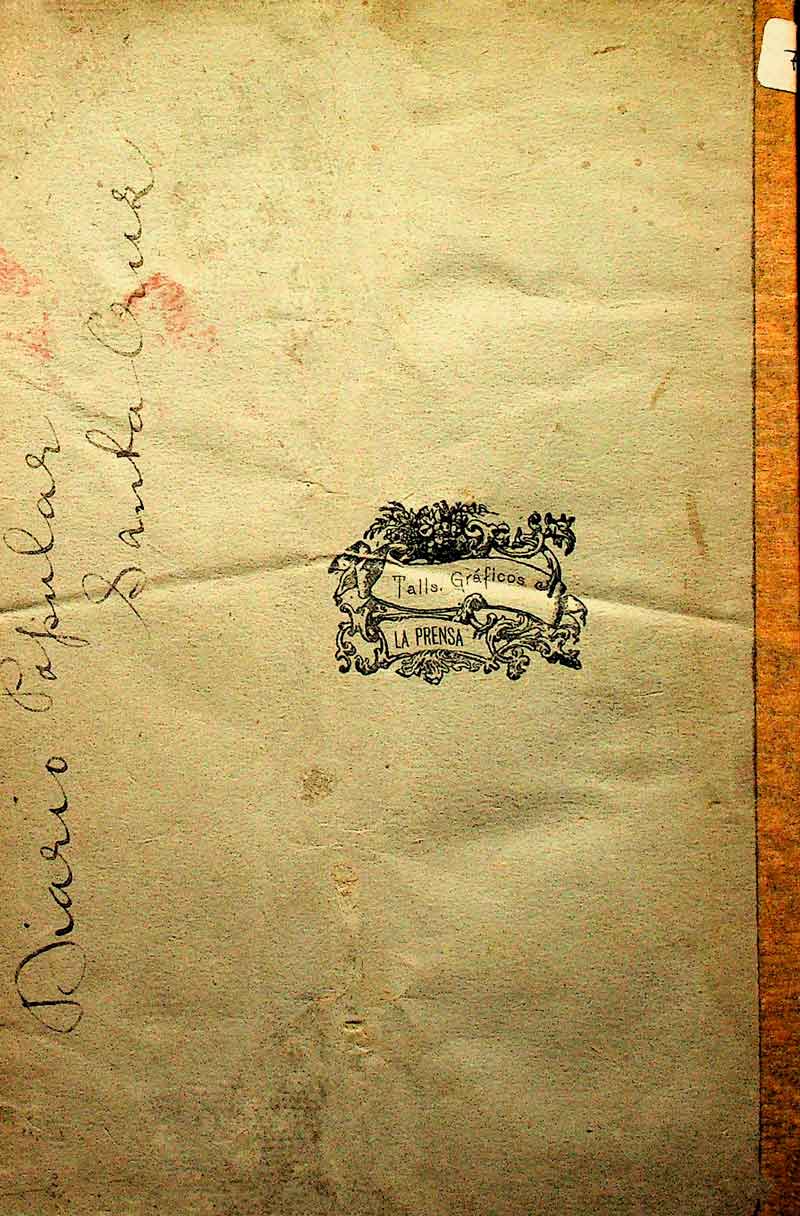 Diario Popular
Santa Cruz
Talls. Gráficos
LA PRENSA